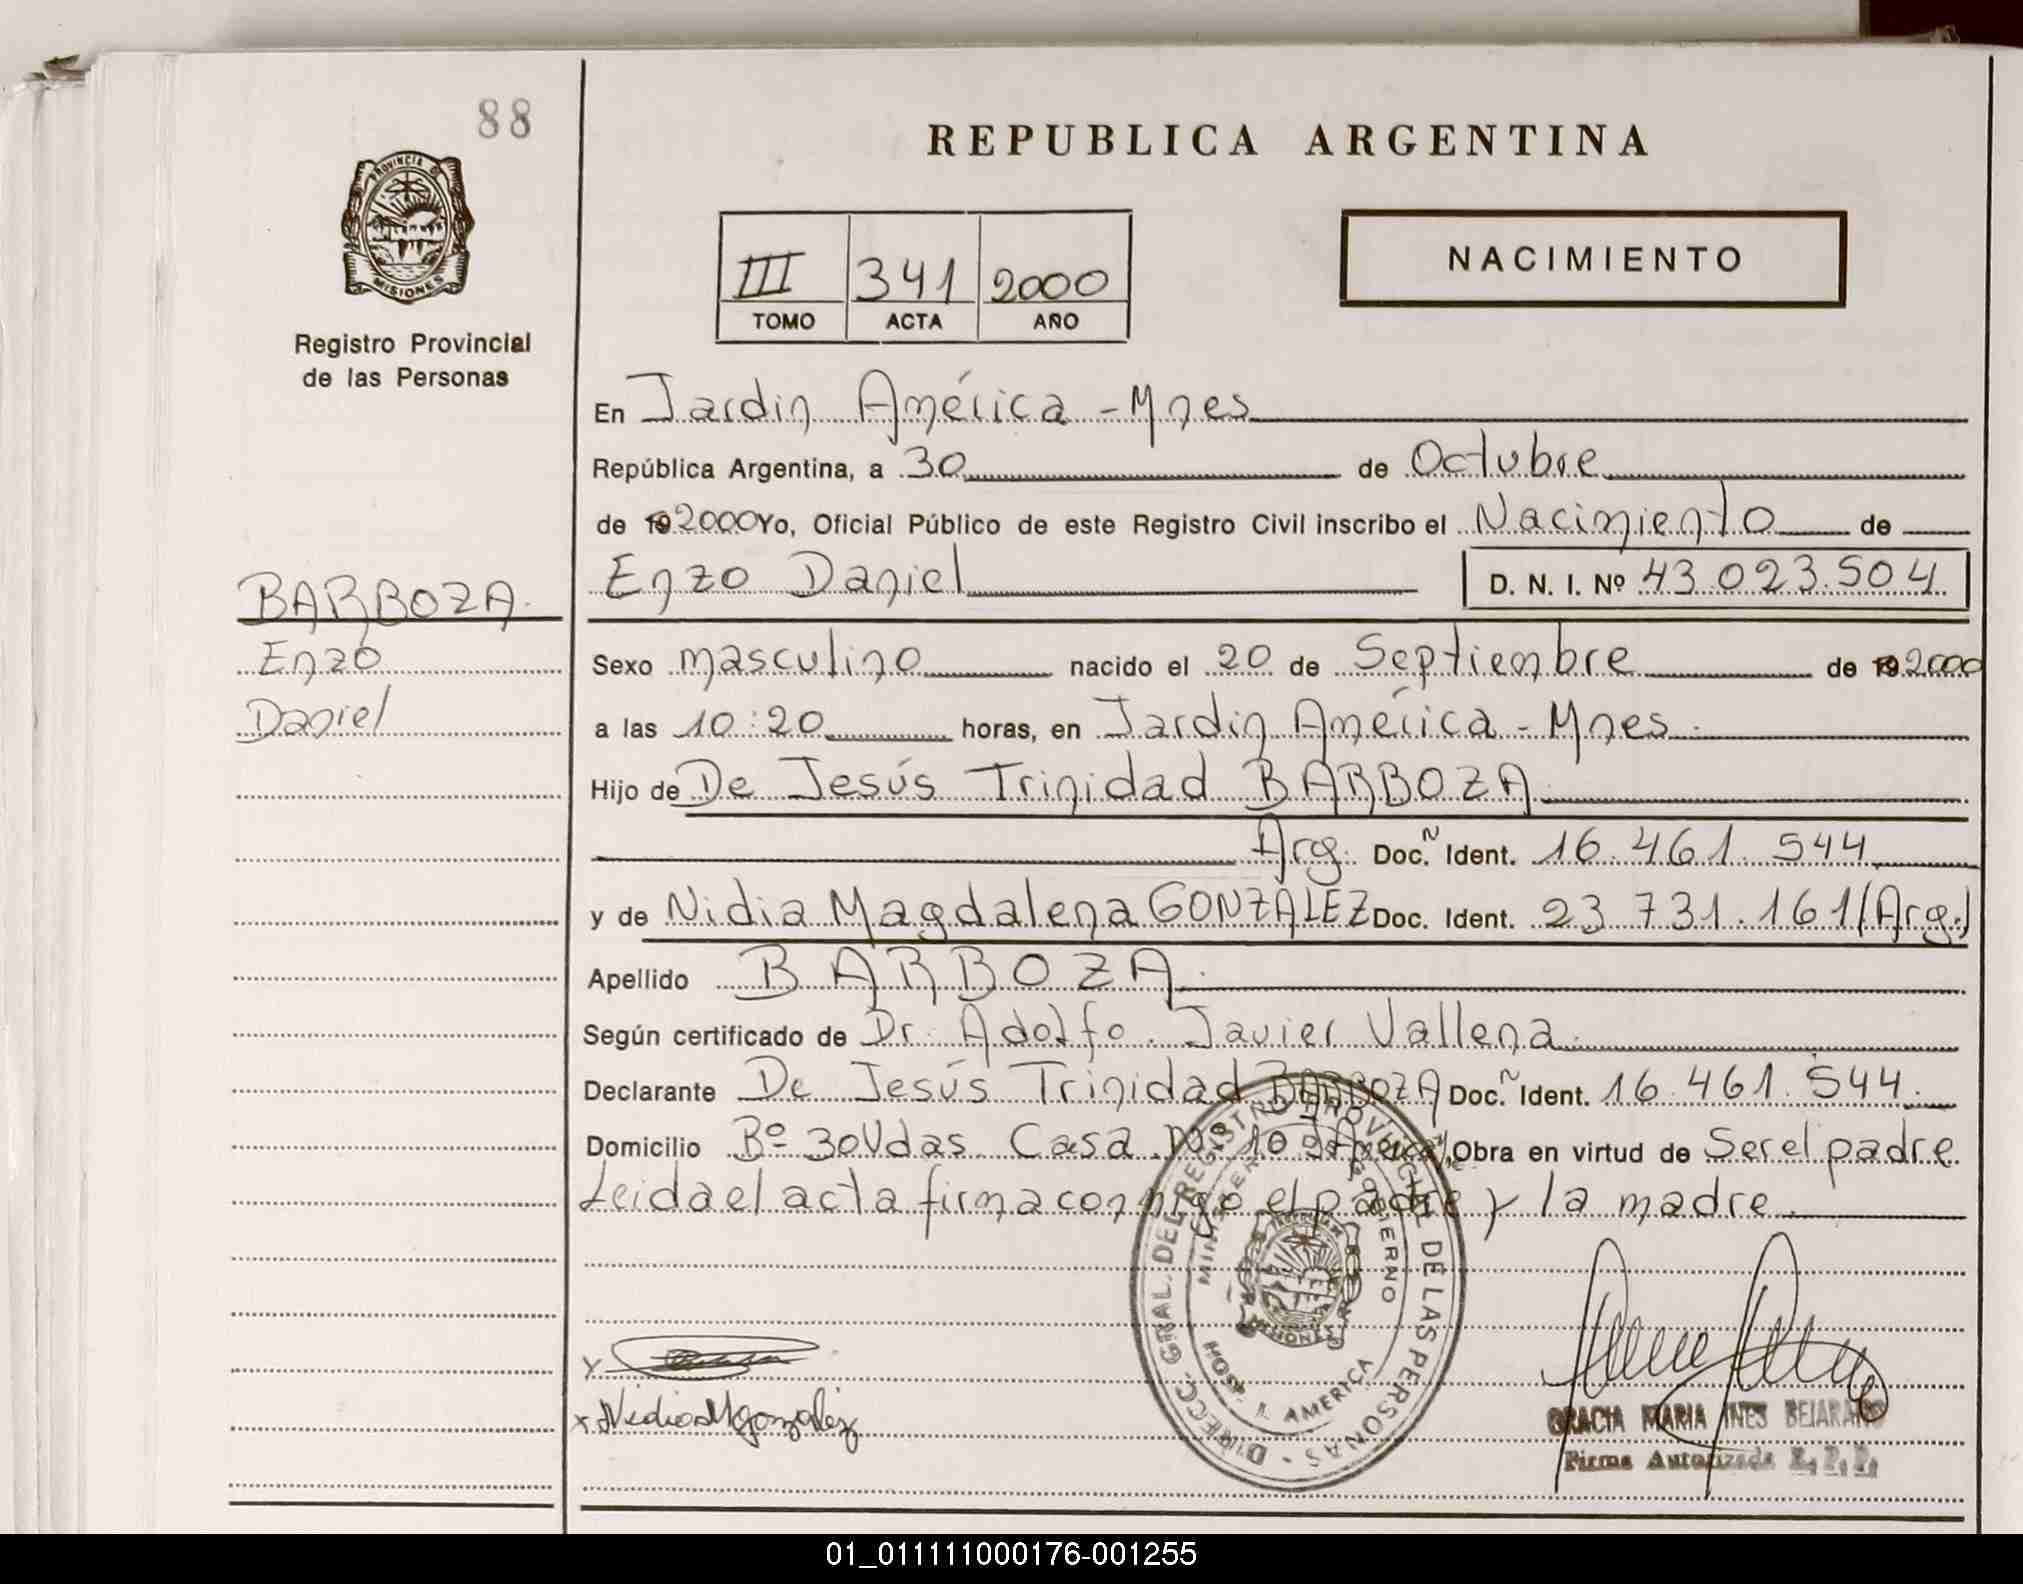 88
REPUBLICA ARGENTINA
PROVINCIA DE
MISIONES
Registro Provincial
de las Personas
III 341 2000
TOMO ACTA AÑO
NACIMIENTO
En Jardin América - Mnes
República Argentina, a 30 de Octubre
de 192000 Yo, Oficial Público de este Registro Civil inscribo el Nacimiento de
Enzo Daniel D. N. I. Nº 43.023.504
BARBOZA.
Enzo
Daniel
Sexo masculino nacido el 20 de Septiembre de 192000
a las 10:20 horas, en Jardin América - Mnes.
Hijo de De Jesús Trinidad BARBOZA
Arg. Doc. Ident. 16.461.544
y de Nidia Magdalena GONZALEZ Doc. Ident. 23.731.161 (Arg.)
Apellido BARBOZA.
Según certificado de Dr. Adolfo Javier Vallena.
Declarante De Jesús Trinidad BARBOZA Doc. Ident. 16.461.544.
Domicilio Bº 30 Vdas Casa Nº 10 J. América, Obra en virtud de Ser el padre
Leida el acta firma conmigo el padre y la madre.
DIRECC. GRAL. DEL REGISTRO PROVINCIAL DE LAS PERSONAS
MINISTERIO GOBIERNO
MISIONES
HOSP. J. AMERICA
x Nidia M gonzalez
GRACIA MARIA INES BEJARANO
Firma Autorizada R. P. P.
01_011111000176-001255